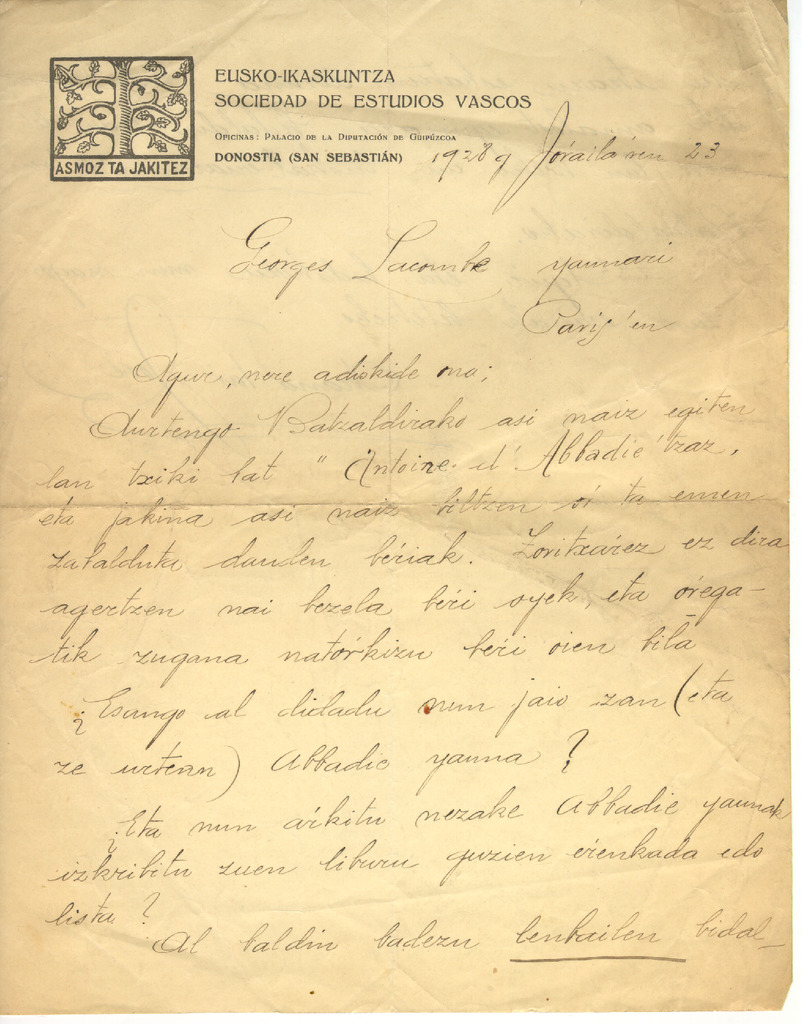 EUSKO-IKASKUNTZA
SOCIEDAD DE ESTUDIOS VASCOS
OFICINAS: PALACIO DE LA DIPUTACIÓN DE GUIPÚZCOA
DONOSTIA (SAN SEBASTIÁN) 1928 g Jórailaren 23
ASMOZ TA JAKITEZ
Georges Lacombe yaunari
Paris'en
Agur, nere adiskide ona;
Aurtengo Batzaldirako asi naiz egiten
lan txiki bat "Antoine d'Abbadie'tzaz,
eta jakiña asi naiz biltzen or ta emen
zabalduta dauden beŕiak. Zoritxaŕez ez dira
agertzen nai bezela beŕi oyek, eta oŕega-
tik zugana natorkizu beŕi oien bila
¿Esango al didadu nun jaio zan (eta
ze urtean) Abbadie yauna?
¿Eta nun aŕkitu nezake Abbadie yaunak
izkribitu zuen liburu guzien eŕenkada edo
lista?
Al baldin badezu lenbailen bidal-